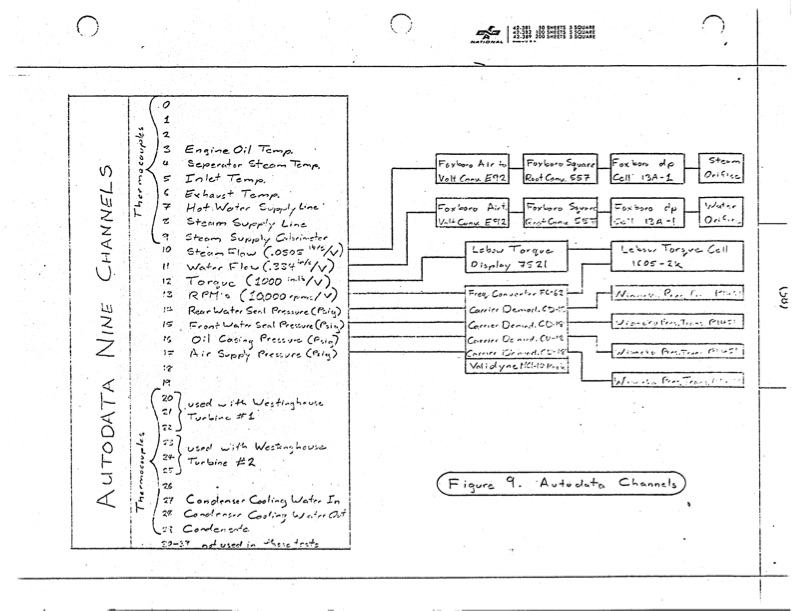 NATIONAL
42-381 50 SHEETS 5 SQUARE
42-382 100 SHEETS 5 SQUARE
42-389 200 SHEETS 5 SQUARE
AUTODATA NINE CHANNELS
Thermocouples
0
1
2
3 Engine Oil Temp.
4 Seperator Steam Temp.
5 Inlet Temp.
6 Exhaust Temp.
7 Hot Water Supply Line
8 Steam Supply Line
9 Steam Supply Calorimeter
10 Steam Flow (.0505 lb/s/V)
11 Water Flow (.334 /V)
12 Torque (1000 in.lb/V)
13 RPM's (10,000 rpms/V)
14 Rear Water Seal Pressure (Psig)
15 Front Water Seal Pressure (Psig)
16 Oil Casing Pressure (Psig)
17 Air Supply Pressure (Psig)
18
19
Thermocouples
20
21
22
used with Westinghouse
Turbine #1
23
24
25
used with Westinghouse
Turbine #2
26
27 Condenser Cooling Water In
28 Condenser Cooling Water Out
29 Condensate
not used in these tests
Foxboro Air to
Volt Conv. E92
Foxboro Square
Root Conv. 557
Foxboro dp
Cell 13A-1
Steam
Orifice
Foxboro Air to
Volt Conv. E92
Foxboro Square
Root Conv. 557
Foxboro dp
Cell 13A-1
Water
Orifice
Lebow Torque
Display 7521
Lebow Torque Cell
1605-2k
Freq. Converter FC-62
Carrier Demod. CD-18
Carrier Demod. CD-18
Carrier Demod. CD-18
Carrier Demod. CD-18
Validyne
Pres. Trans.
Pres. Trans.
Pres. Trans.
Pres. Trans.
Figure 9. Autodata Channels